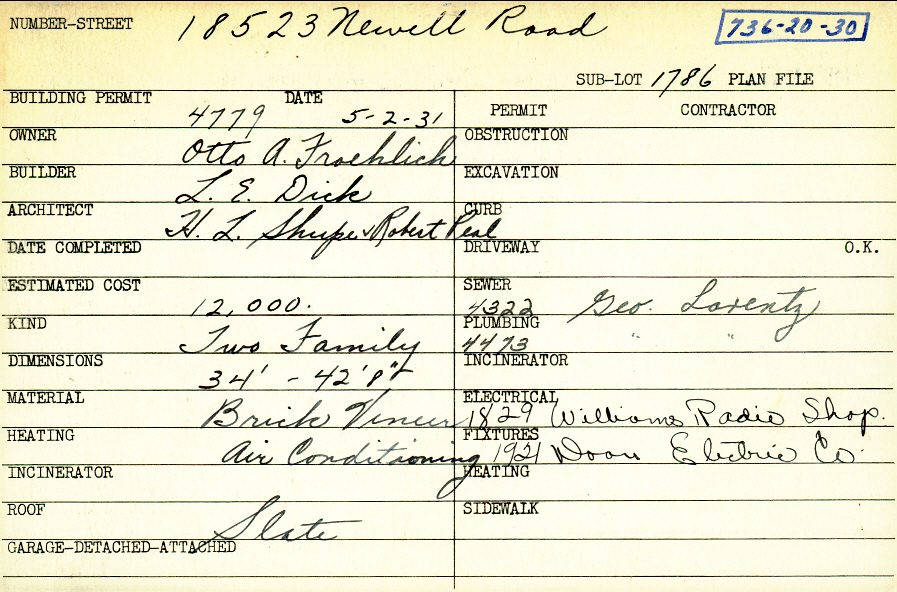 NUMBER-STREET 18523 Newell Road 736-20-30
SUB-LOT 1786 PLAN FILE
BUILDING PERMIT 4779 DATE 5-2-31 PERMIT CONTRACTOR
OWNER Otto A. Froehlich OBSTRUCTION
BUILDER L. E. Dick EXCAVATION
ARCHITECT H. L. Shupe & Robert Peal CURB
DATE COMPLETED DRIVEWAY O.K.
ESTIMATED COST 12,000. SEWER 4322 Geo. Lorentz
KIND Two Family PLUMBING 4473 " "
DIMENSIONS 34' - 42'8" INCINERATOR
MATERIAL Brick Vineer ELECTRICAL 1829 Williams Radio Shop.
HEATING Air Conditioning FIXTURES 1921 Doan Electric Co.
INCINERATOR HEATING
ROOF Slate SIDEWALK
GARAGE-DETACHED-ATTACHED